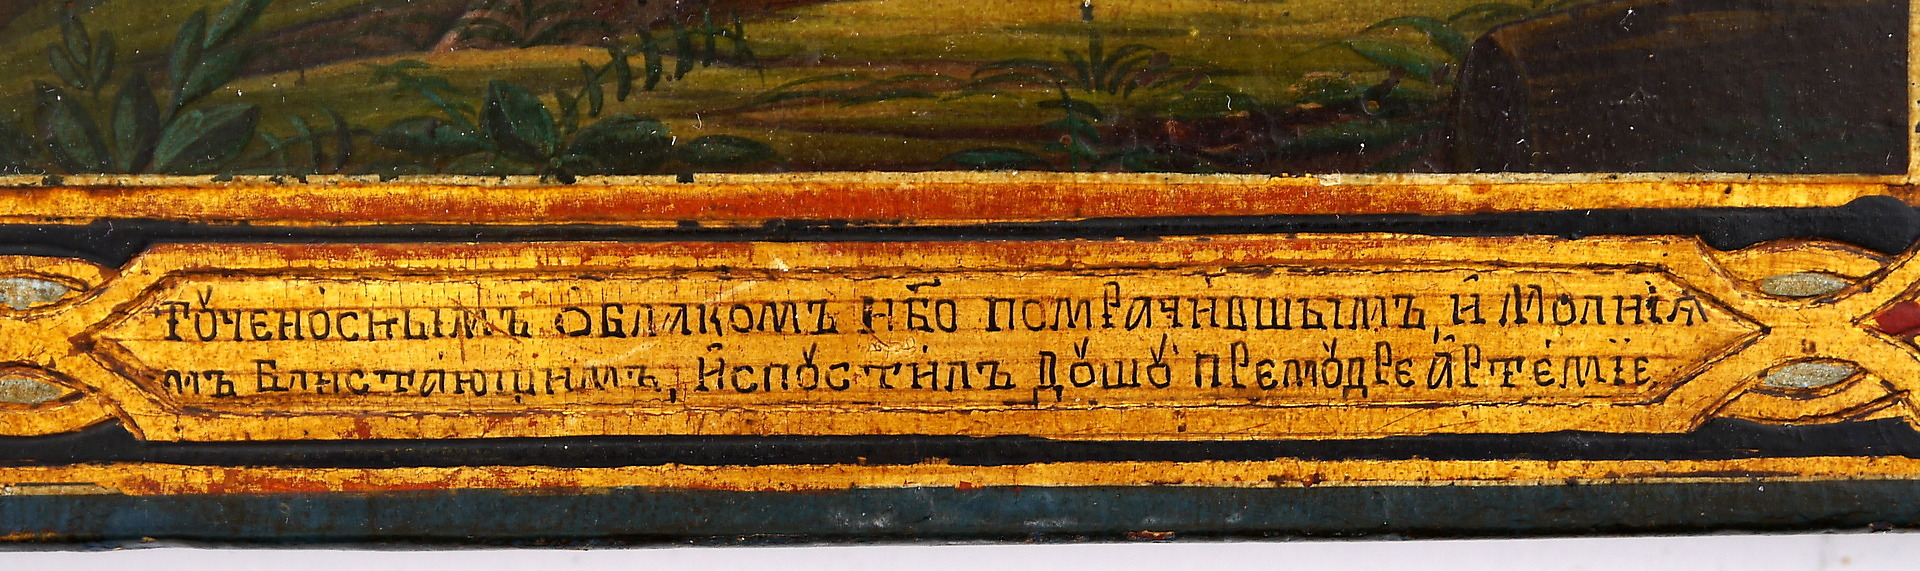 тꙋ́ченосным̾ъ ѻ҆́блакомъ нб҃о помрачи́вшымъ, и҆ мо́лнїѧ
мъ блиста́ющимъ, и҆спꙋсти́лъ дꙋ́шꙋ премꙋ́дре а҆рте́мїе